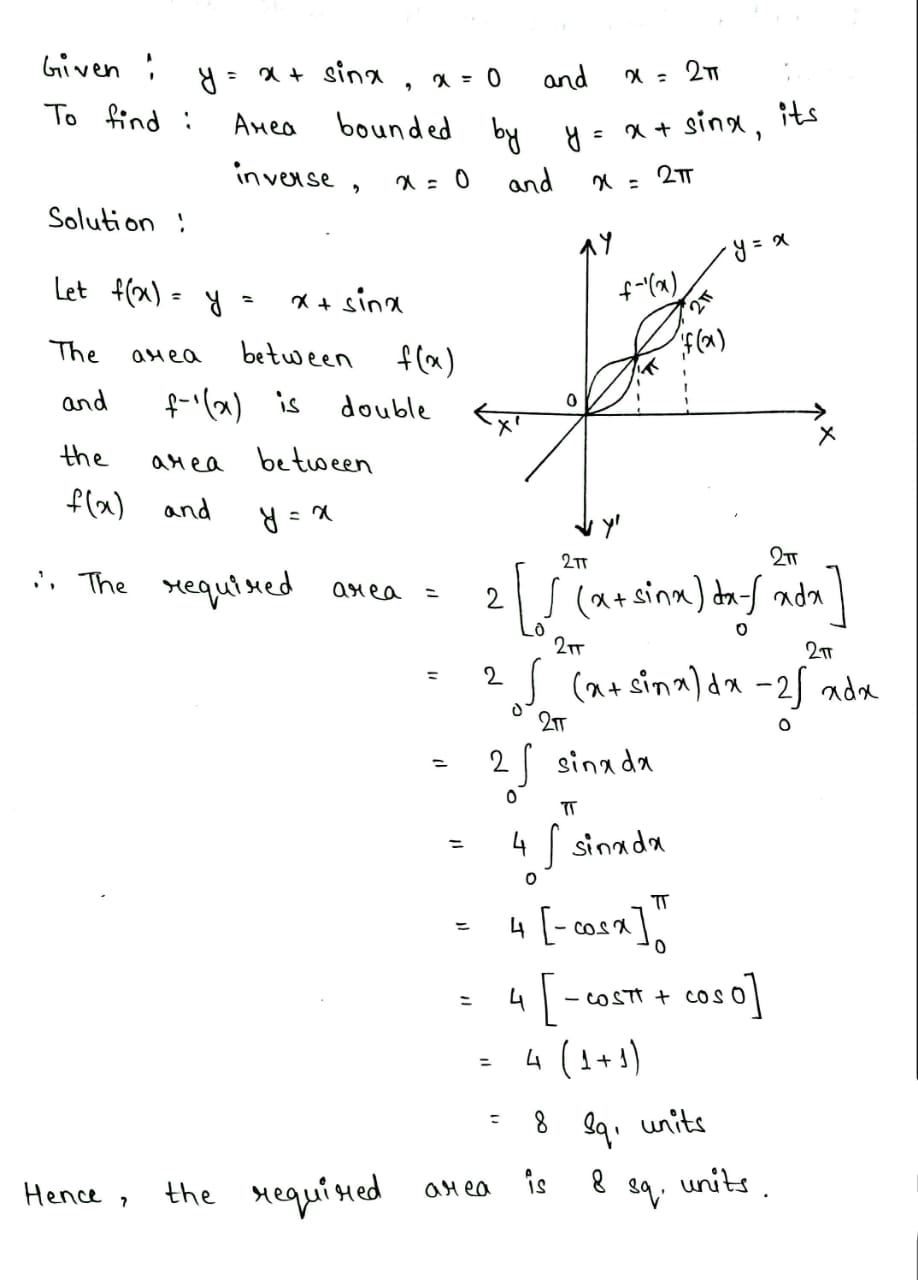 Given : y = x + sinx , x = 0 and x = 2π
To find : Area bounded by y = x + sinx, its
inverse , x = 0 and x = 2π
Solution :
Let f(x) = y = x + sinx
The area between f(x)
and f⁻¹(x) is double
the area between
f(x) and y = x
Y
y = x
f⁻¹(x)
2π
f(x)
π
O
X'
X
Y'
∴ The required area = 2[∫₀^2π (x + sinx) dx - ∫₀^2π xdx]
= 2 ∫₀^2π (x + sinx) dx - 2∫₀^2π xdx
= 2 ∫₀^2π sinxdx
= 4 ∫₀^π sinxdx
= 4 [-cosx]₀^π
= 4 [-cosπ + cos0]
= 4 (1+1)
= 8 sq. units
Hence , the required area is 8 sq. units .